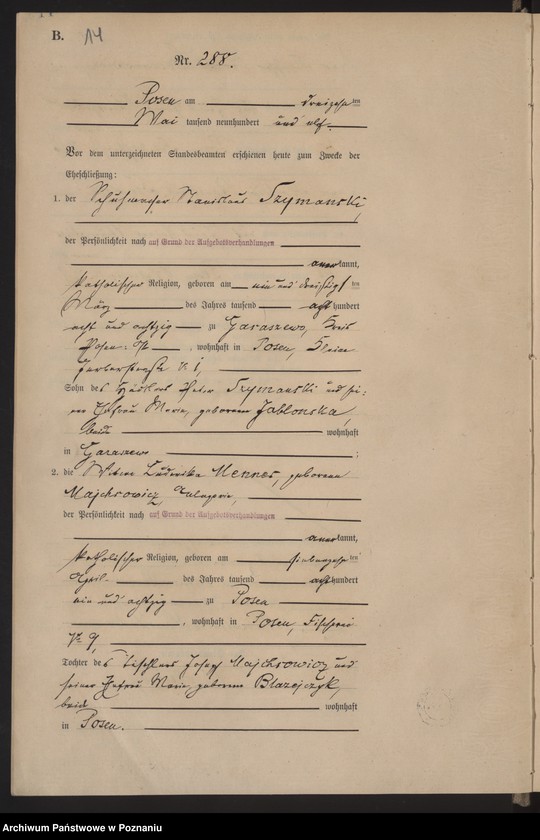 B. 14
Nr. 288.
Posen am dreizehn ten
Mai tausend neunhundert und elf.
Vor dem unterzeichneten Standesbeamten erschienen heute zum Zwecke der
Eheschließung:
1. der Schuhmacher Stanislaus Szymanski,
der Persönlichkeit nach auf Grund der Aufgebotsverhandlungen
anerkannt,
katholischer Religion, geboren am ein und dreißigs ten
März des Jahres tausend acht hundert
acht und achtzig zu Garaszewo, Kreis
Posen-Ost, wohnhaft in Posen, Kleine
Gerberstraße 1,
Sohn des Peter Szymanski und sei-
ner Ehefrau Marie, geborenen Jablonska,
beide wohnhaft
in Garaszewo ;
2. die Witwe Ludwika Mennes, geborene
Majchrowicz,
der Persönlichkeit nach auf Grund der Aufgebotsverhandlungen
anerkannt,
katholischer Religion, geboren am siebenzehn ten
April des Jahres tausend acht hundert
ein und achtzig zu Posen
, wohnhaft in Posen, Fischerei
No 9,
Tochter des Tischlers Josef Majchrowicz und
seiner Ehefrau Marie, geborenen Blazejczyk,
beide wohnhaft
in Posen.
Archiwum Państwowe w Poznaniu